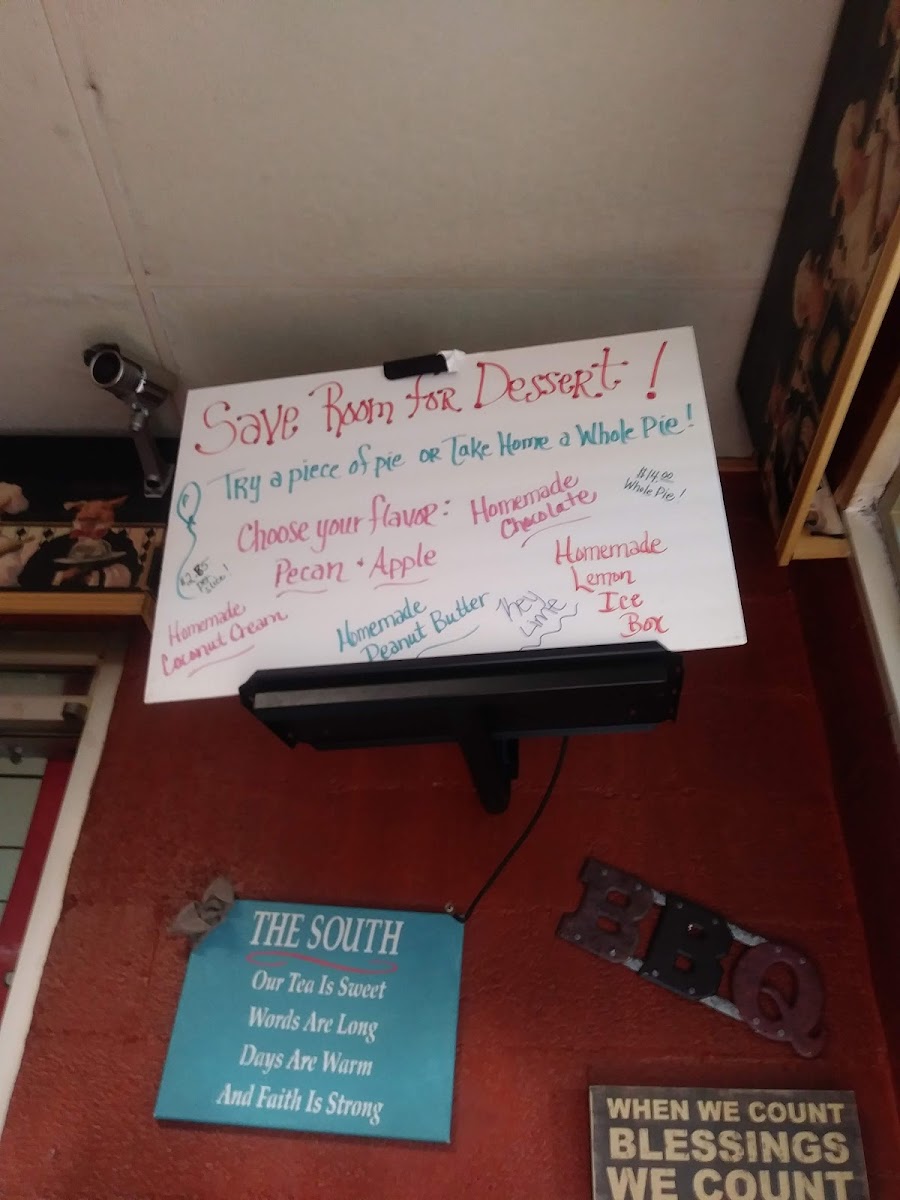 Save Room for Dessert!
Try a piece of pie or Take Home a Whole Pie!
$14.00
Whole Pie!
Choose your flavor:
Homemade
Chocolate
$2.85
per slice!
Pecan + Apple
Homemade
Lemon
Ice
Box
Homemade
Coconut Cream
Homemade
Peanut Butter
Key
Lime
THE SOUTH
Our Tea Is Sweet
Words Are Long
Days Are Warm
And Faith Is Strong
BBQ
WHEN WE COUNT
BLESSINGS
WE COUNT